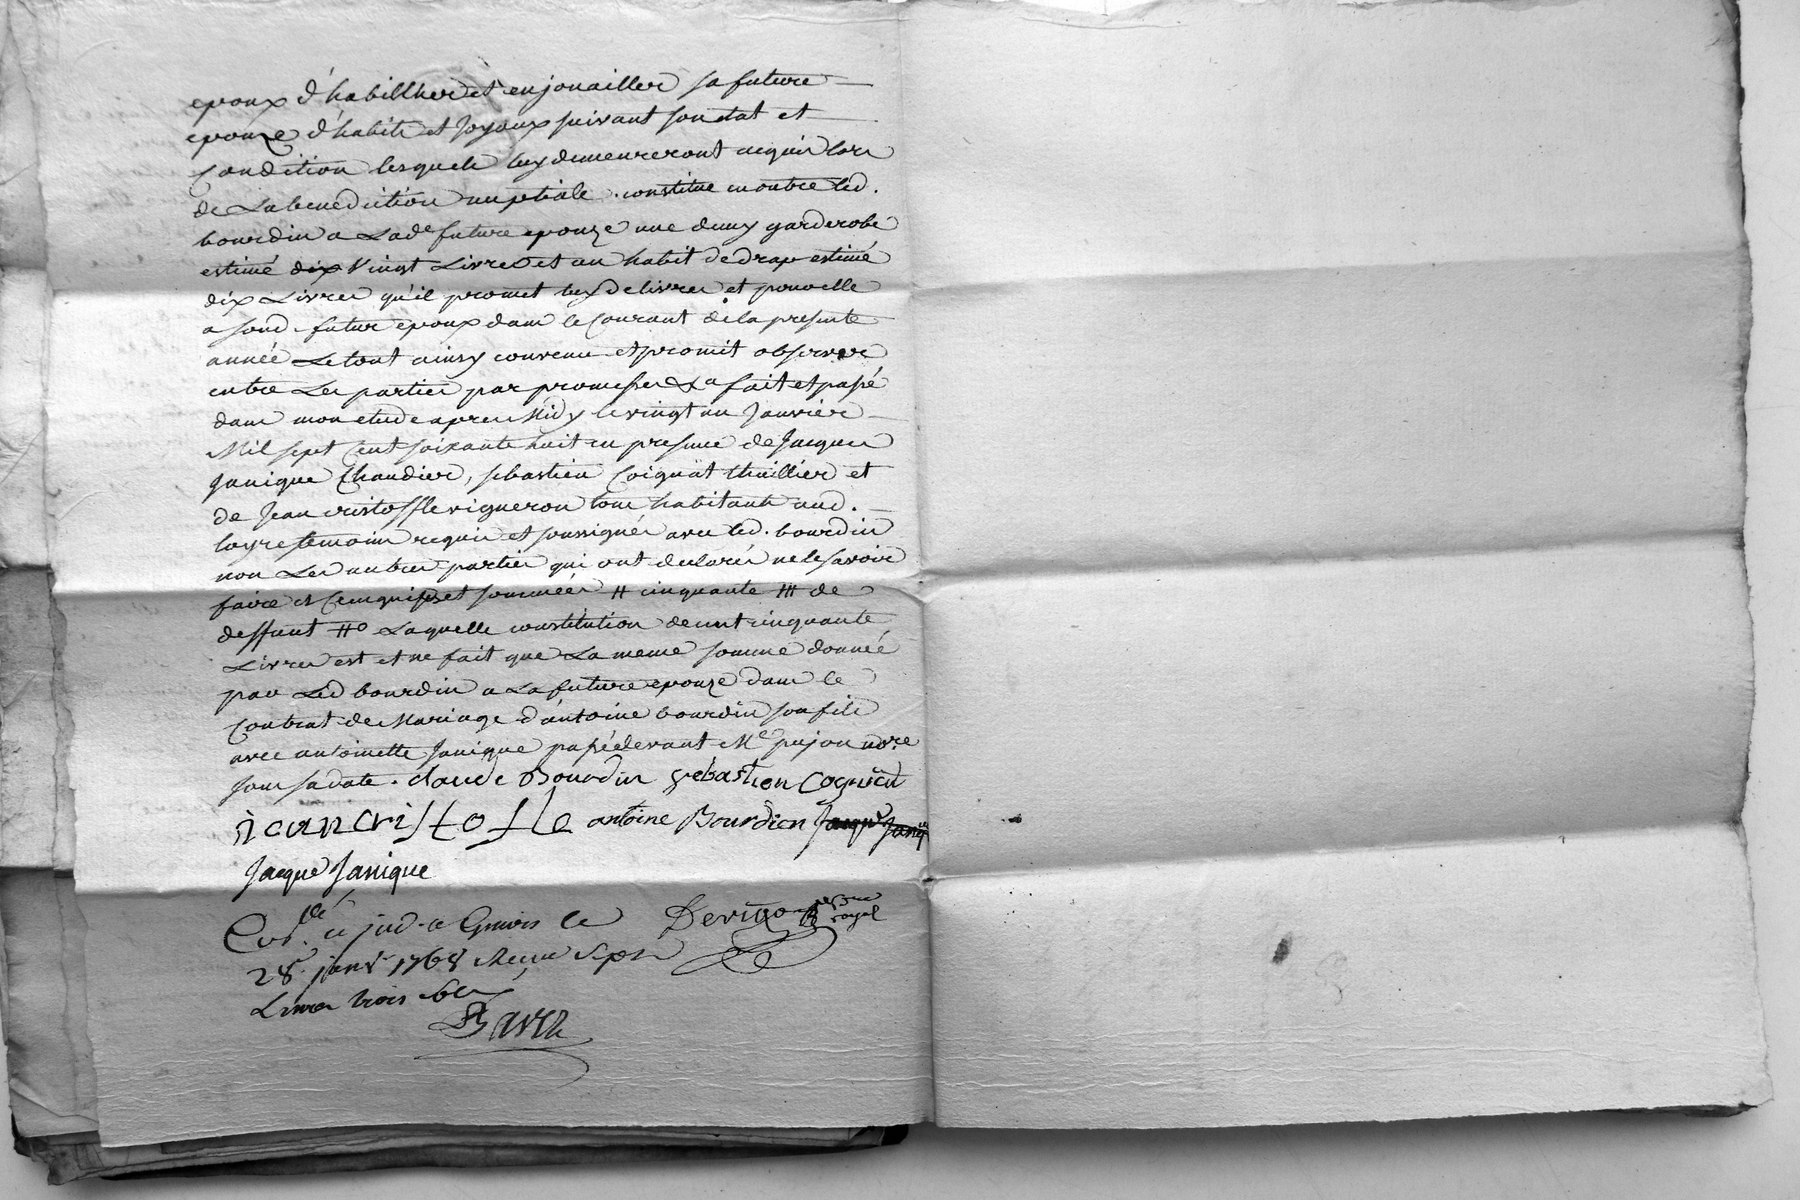 epoux d'habillher et enjouailler sa future
epouze d'habits et joyaux suivant son etat et
Condition lesquels luy demeureront acquis lors
de La benediction nuptiale. constitue en outre led.
bourdin a Lade future epouze une demy garderobe
estimé dix Vingt Livres et un habit de drap estimé
dix Livres qu'il promet luy delivrer et pour elle
a sond. futur epoux dans le Courant de la presente
année Le tout ainsy convenu et promit observer
entre Les parties par promesses &a fait et passé
dans mon etude apres Midy le vingt un Janvier
Mil sept Cent soixante huit en presence de Jacques
Janique Chaudier, sebastien Coignat thuillier et
de Jean cristoffle vigneron tous habitants aud.
loyre temoins requis et soussignés avec led. bourdin
non Les autres parties qui ont declarés ne le savoir
faire et sommées # cinquante ## de
deffunt ##o Laquelle constitution de cent cinquante
Livres est et ne fait que La meme somme donnée
par Led bourdin a La future epouze dans le
Contrat de Mariage d'antoine bourdin son fils
avec antoinette Janique passé devant Me pujon nore
sous sa date. claude Bourdin sébastien Cognićit
jeancristofle antoine Bourdien Jaque Janiq
Jacque Janique
a Givors le
royal
28. janv. 1768 Receu Sept
Livres trois sols